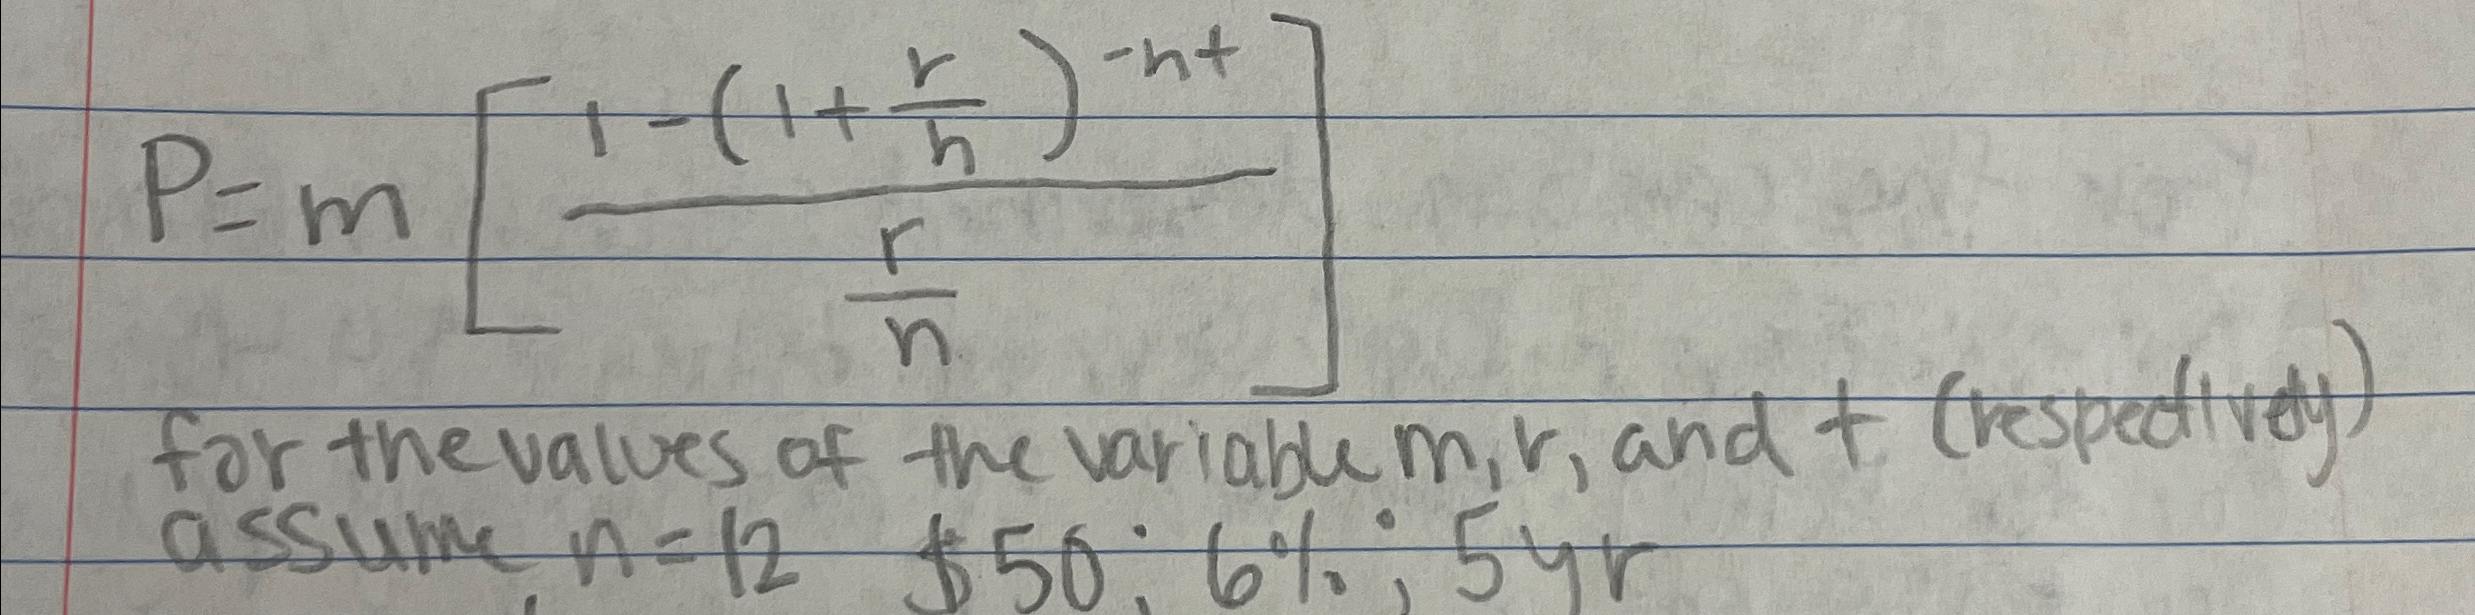 P = m [ (1 - (1 + r/n)^-nt) / (r/n) ]
for the values of the variable m, r, and t (respectively)
assume n = 12 $50; 6%; 5yr